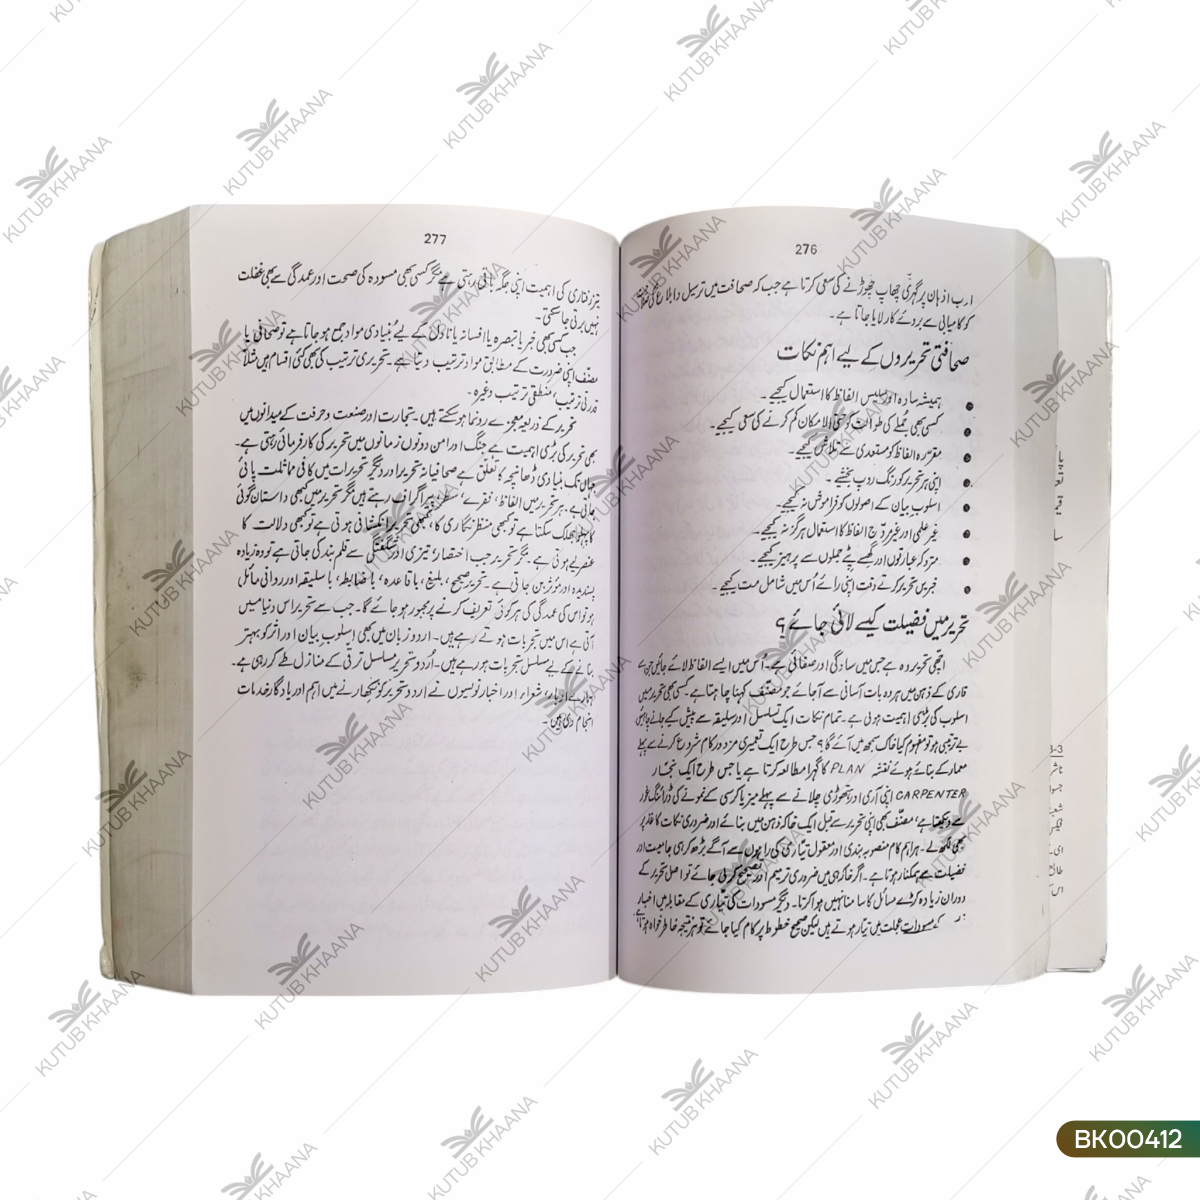 276
ارب اذہان پر گہری چھاپ چھوڑنے کی سعی کرتا ہے جب کہ صحافت میں ترسیل و ابلاغ کی
کو کامیابی سے بروئے کار لایا جاتا ہے۔
صحافتی تحریروں کے لیے اہم نکات
ہمیشہ سادہ اور سلیس الفاظ کا استعمال کیجیے۔
کسی بھی جملے کی طوالت کو حتی الامکان کم کرنے کی سعی کیجیے۔
مقررہ الفاظ کو مستعدی سے تلاش کیجیے۔
اپنی ہر تحریر کو رنگ روپ بخشئے۔
اسلوب بیان کے اصولوں کو فراموش نہ کیجیے۔
غیر علمی اور غیر مروّج الفاظ کا استعمال ہرگز نہ کیجیے۔
متروکہ عبارتوں اور گھسے پٹے جملوں سے پرہیز کیجیے۔
خبریں تحریر کرتے وقت اپنی رائے اُس میں شامل مت کیجیے۔
تحریر میں فضیلت کیسے لائی جائے؟
اچھی تحریر وہ ہے جس میں سادگی اور صفائی ہے۔ اُس میں ایسے الفاظ لائے جائیں جن سے
قاری کے ذہن میں ہر وہ بات آسانی سے آجائے جو مصنّف کہنا چاہتا ہے۔ کسی بھی تحریر میں
اسلوب کی بڑی اہمیت ہوتی ہے۔ تمام نکات ایک تسلسل اور سلیقہ سے پیش کیے جانے چاہئیں
بے ترتیبی ہو تو مفہوم کیا خاک سمجھ میں آئے گا؟ جس طرح ایک تعمیری مزدور کام شروع کرنے سے پہلے
معمار کے بنائے ہوئے نقشہ PLAN کا گہرا مطالعہ کرتا ہے یا جس طرح ایک نجّار
CARPENTER اپنی آری اور ہتھوڑی چلانے سے پہلے میز یا کرسی کے نمونے کی ڈرائنگ غور
سے دیکھتا ہے، مصنّف بھی اپنی تحریر سے قبل ایک خاکہ ذہن میں بنائے اور ضروری نکات کاغذ پر
بھی لکھ لے۔ ہر اہم کام منصوبہ بندی اور معقول تیاری کی راہوں سے آگے بڑھ کر ہی جامعیت اور
فضیلت سے ہمکنار ہوتا ہے۔ اگر خاکہ ہی میں ضروری ترمیم اور تصحیح کر لی جائے تو اصل تحریر کے
دوران زیادہ کڑے مسائل کا سامنا نہیں ہوا کرتا۔ دیگر مسودات کی تیاری کے مقابلہ میں اخبار
کے مسودات عجلت میں تیار ہوتے ہیں لیکن صحیح خطوط پر کام کیا جائے تو ہر نتیجہ خاطر خواہ ہوتا ہے
277
تیز رفتاری کی اہمیت اپنی جگہ باقی رہتی ہے مگر کسی بھی مسودہ کی صحت اور عمدگی سے بھی غفلت
نہیں برتی جاسکتی۔
جب کسی بھی خبر یا تبصرہ یا افسانہ یا ناول کے لیے بُنیادی مواد جمع ہو جاتا ہے تو صحافی یا
مصنّف اپنی ضرورت کے مطابق مواد ترتیب دیتا ہے۔ تحریری ترتیب کی بھی کئی اقسام ہیں مثلاً
قدرتی ترتیب، منطقی ترتیب وغیرہ۔
تحریر کے ذریعہ معجزے رونما ہوسکتے ہیں۔ تجارت اور صنعت و حرفت کے میدانوں میں
بھی تحریر کی بڑی اہمیت ہے جنگ اور امن دونوں زمانوں میں تحریر کی کار فرمائی رہتی ہے۔
جہاں تک بنیادی ڈھانچہ کا تعلق ہے صحافیانہ تحریر اور دیگر تحریرات میں کافی مماثلت پائی
جاتی ہے۔ ہر تحریر میں الفاظ، فقرے، سطر، پیراگراف رہتے ہیں مگر تحریر میں کبھی داستان گوئی
کا پہلو جھلک سکتا ہے تو کبھی منظر نگاری کا، کبھی تحریر انکشافی ہوتی ہے تو کبھی دلالت کا
عنصر لیے ہوتی ہے۔ مگر تحریر جب اختصار، تیزی اور شگفتگی سے قلم بند کی جاتی ہے تو وہ زیادہ
پسندیدہ اور مُوثر بن جاتی ہے۔ تحریر صحیح، بلیغ، باقاعدہ، باضابطہ، باسلیقہ اور روانی مائل
ہو تو اس کی عمدگی کی ہر کوئی تعریف کرنے پر مجبور ہو جائے گا۔ جب سے تحریر اس دنیا میں
آئی ہے اس میں تجربات ہوتے رہے ہیں۔ اردو زبان میں بھی اسلوب بیان اور اثر کو بہتر
بنانے کے لیے مسلسل تجربات ہو رہے ہیں۔ اُردو تحریر مسلسل ترقی کے منازل طے کر رہی ہے۔
ہمارے ادباء، شعراء اور اخبار نویسوں نے اردو تحریر کو نکھارنے میں اہم اور یادگار خدمات
انجام دی ہیں۔
KUTUB KHAANA
BK00412